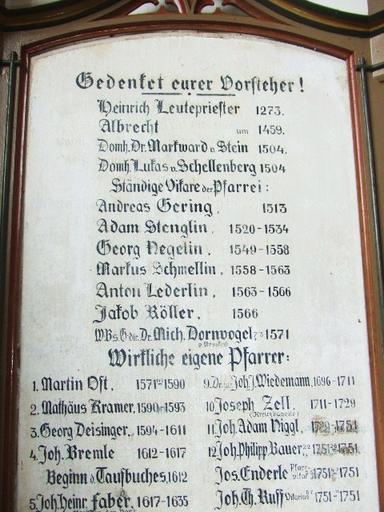 Gedenket eurer Vorsteher!
Heinrich Leutepriester 1273.
Albrecht um 1459.
Domh. Dr. Markward v. Stein 1504.
Domh. Lukas v. Schellenberg 1504
Ständige Vikare der Pfarrei:
Andreas Gering, 1513
Adam Stenglin, 1520-1534
Georg Negelin, 1549-1558
Markus Schmellin, 1558-1563
Anton Lederlin, 1563-1566
Jakob Röller, 1566
Dr. Mich. Dornvogel 1571
Wirkliche eigene Pfarrer:
1. Martin Ost, 1571-1590
2. Mathäus Kramer, 1590-1593
3. Georg Deisinger, 1594-1611
4. Joh. Bremle 1612-1617
Beginn d. Taufbuches, 1612
5. Joh. Heinr. Faber, 1617-1635
9. Dr. Joh. J. Wiedemann, 1696-1711
10 Joseph Zell, 1711-1729
11 Joh. Adam Niggl, 1729-1751
12 Joh. Philipp Bauer 1751-1751
Jos. Enderle 1751-1751
Joh. G. Ruff 1751-1751